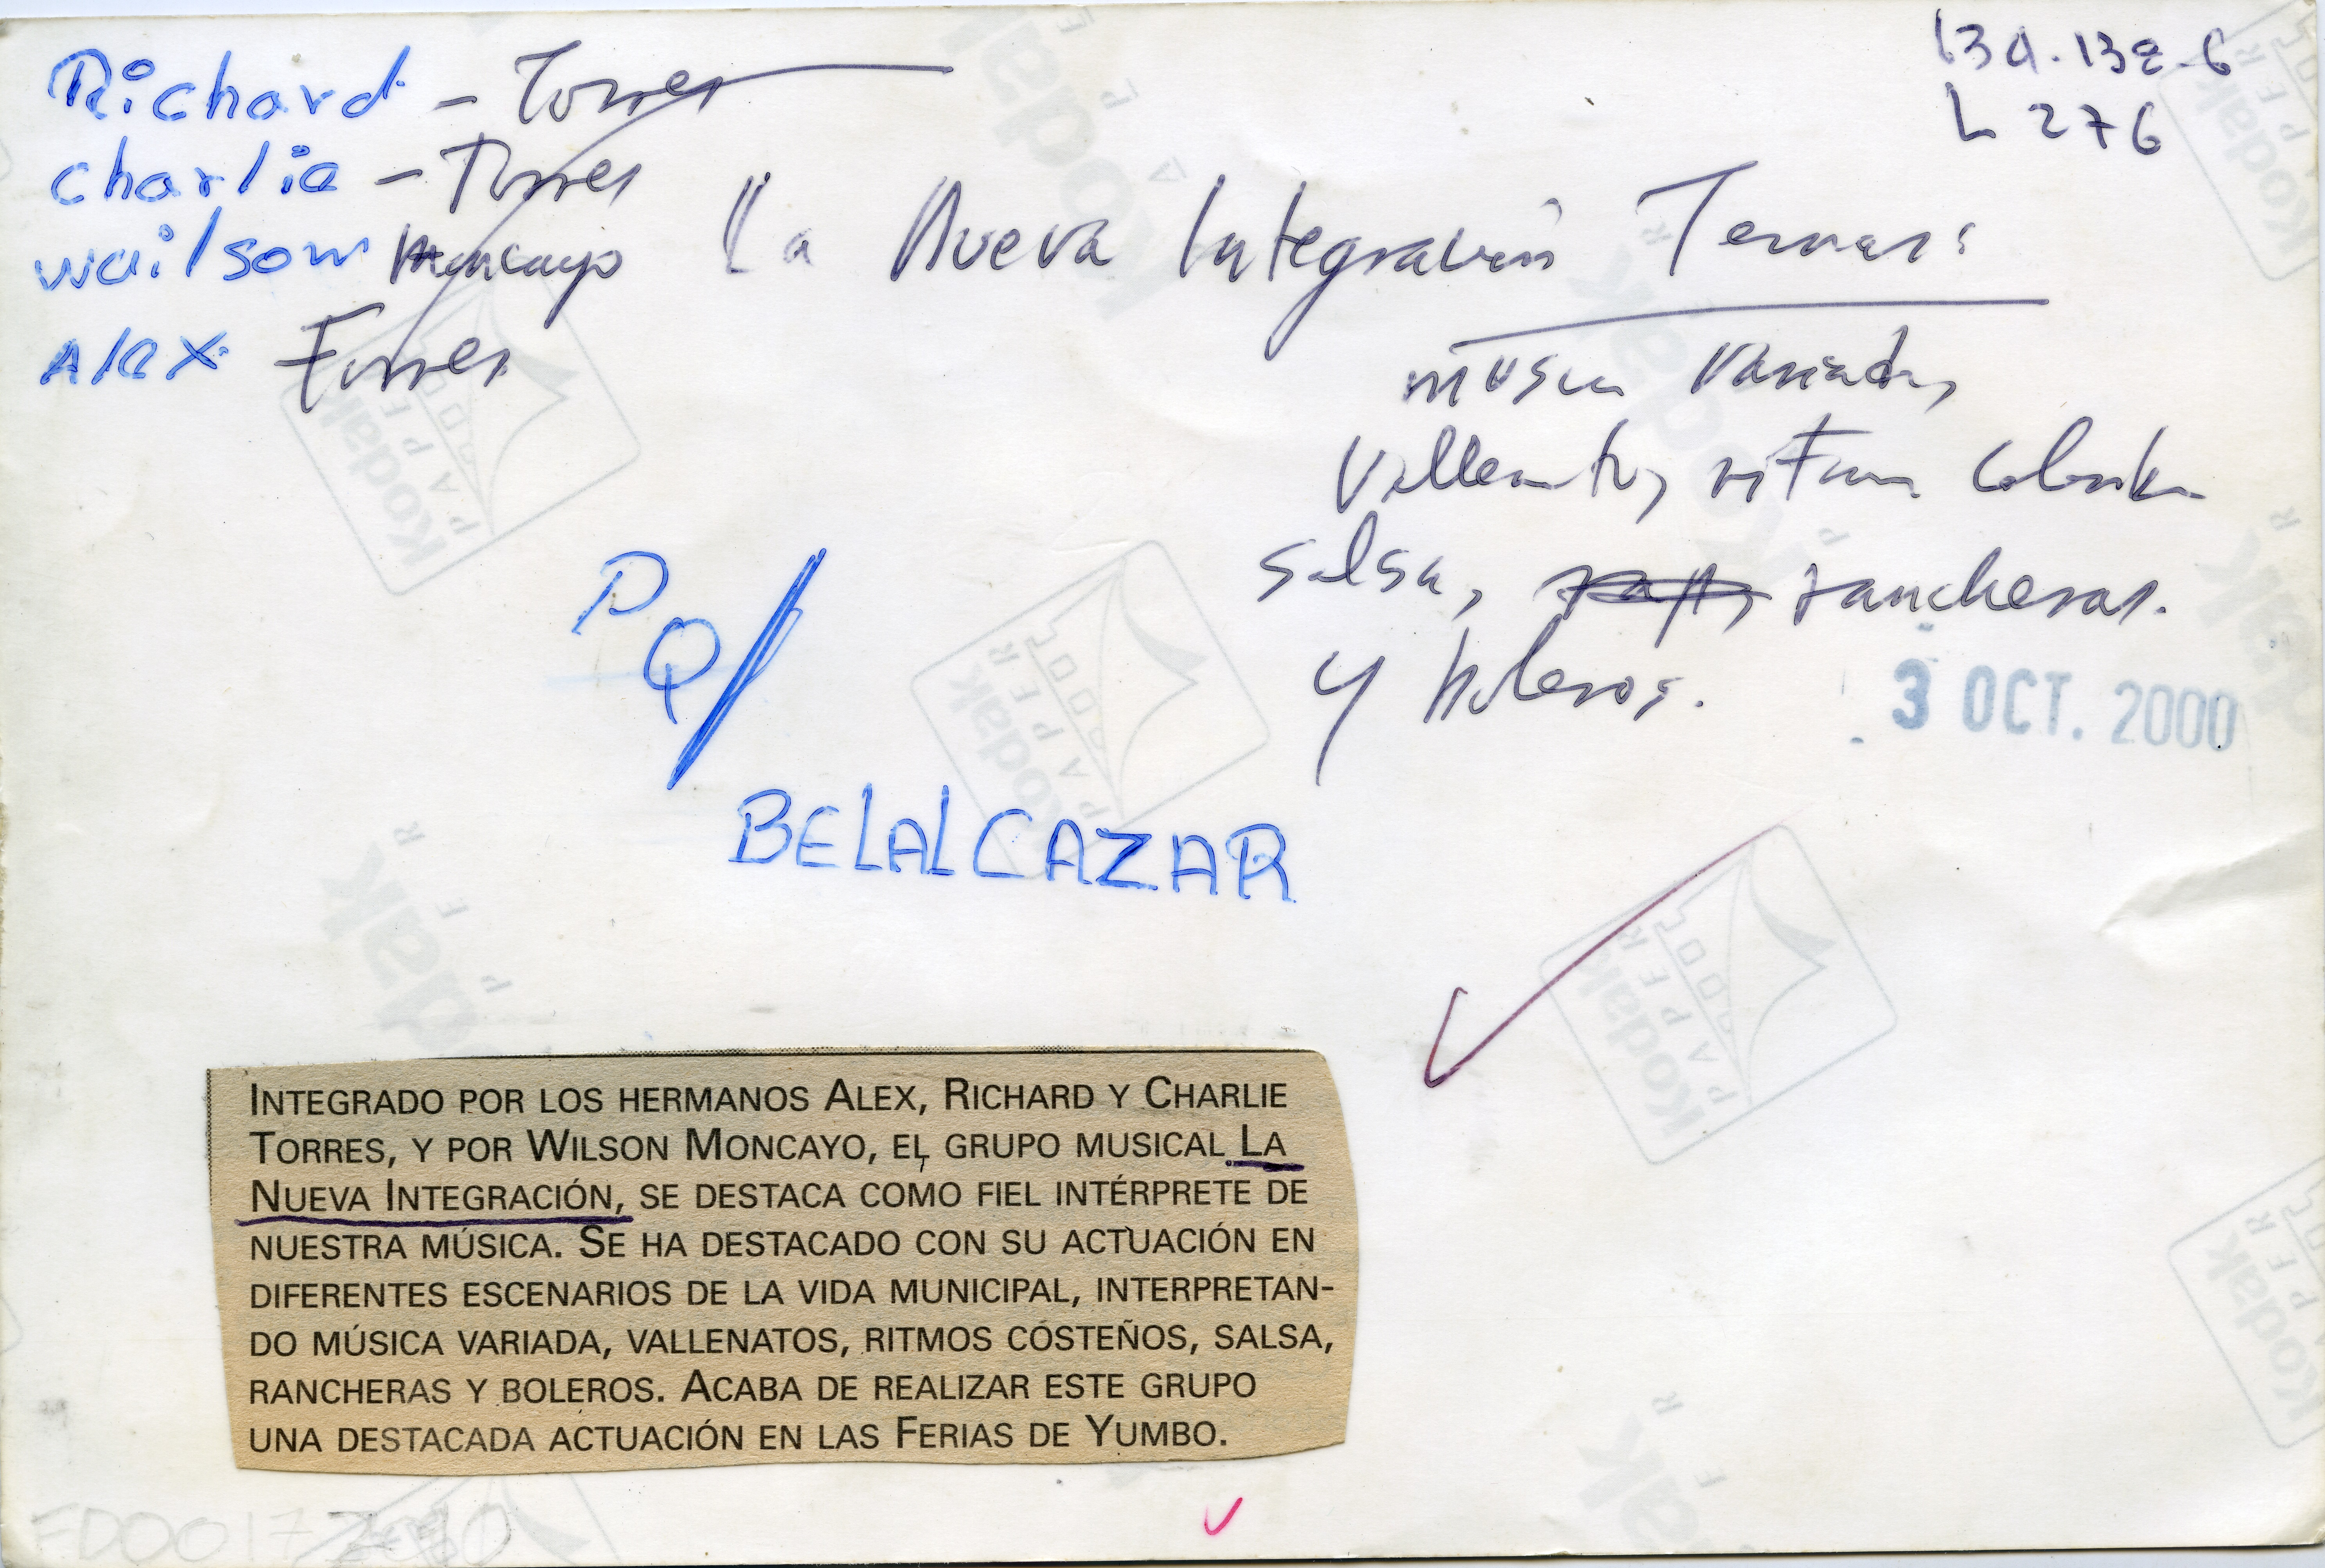 Richard - Torres
charlie - Torres
wailsom Moncayo
Alex Torres
La Nueva Integración
musica variada,
Vallenatos, ritmos
salsa, rancheras.
y boleros.
L 276
3 OCT. 2000
PQ/
BELALCAZAR
INTEGRADO POR LOS HERMANOS ALEX, RICHARD Y CHARLIE
TORRES, Y POR WILSON MONCAYO, EL GRUPO MUSICAL LA
NUEVA INTEGRACIÓN, SE DESTACA COMO FIEL INTÉRPRETE DE
NUESTRA MÚSICA. SE HA DESTACADO CON SU ACTUACIÓN EN
DIFERENTES ESCENARIOS DE LA VIDA MUNICIPAL, INTERPRETAN-
DO MÚSICA VARIADA, VALLENATOS, RITMOS COSTEÑOS, SALSA,
RANCHERAS Y BOLEROS. ACABA DE REALIZAR ESTE GRUPO
UNA DESTACADA ACTUACIÓN EN LAS FERIAS DE YUMBO.
Kodak
PAPER